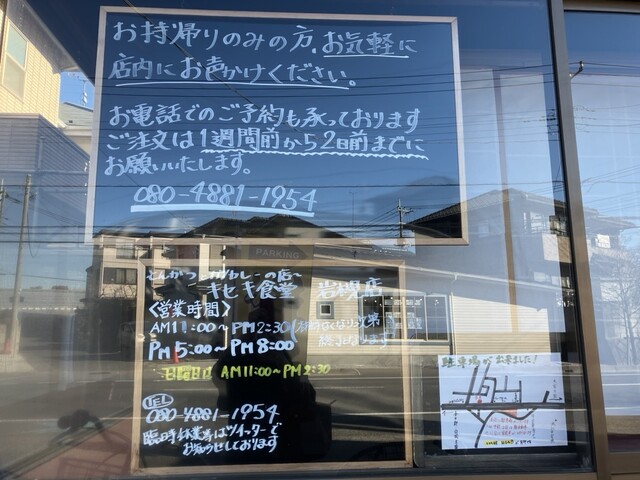 お持帰りのみの方、お気軽に
店内にお声かけください。
お電話でのご予約も承っております
ご注文は1週間前から2日前までに
お願いいたします。
080-4881-1954
PARKING
とんかつ の店~
キセキ食堂 岩槻店
〈営業時間〉
AM11:00~PM2:30
PM5:00~PM8:00
日曜日は AM11:00~PM2:30
TEL
080-4881-1954
臨時休業等はツイッターで
お知らせしております
駐車場が出来ました!